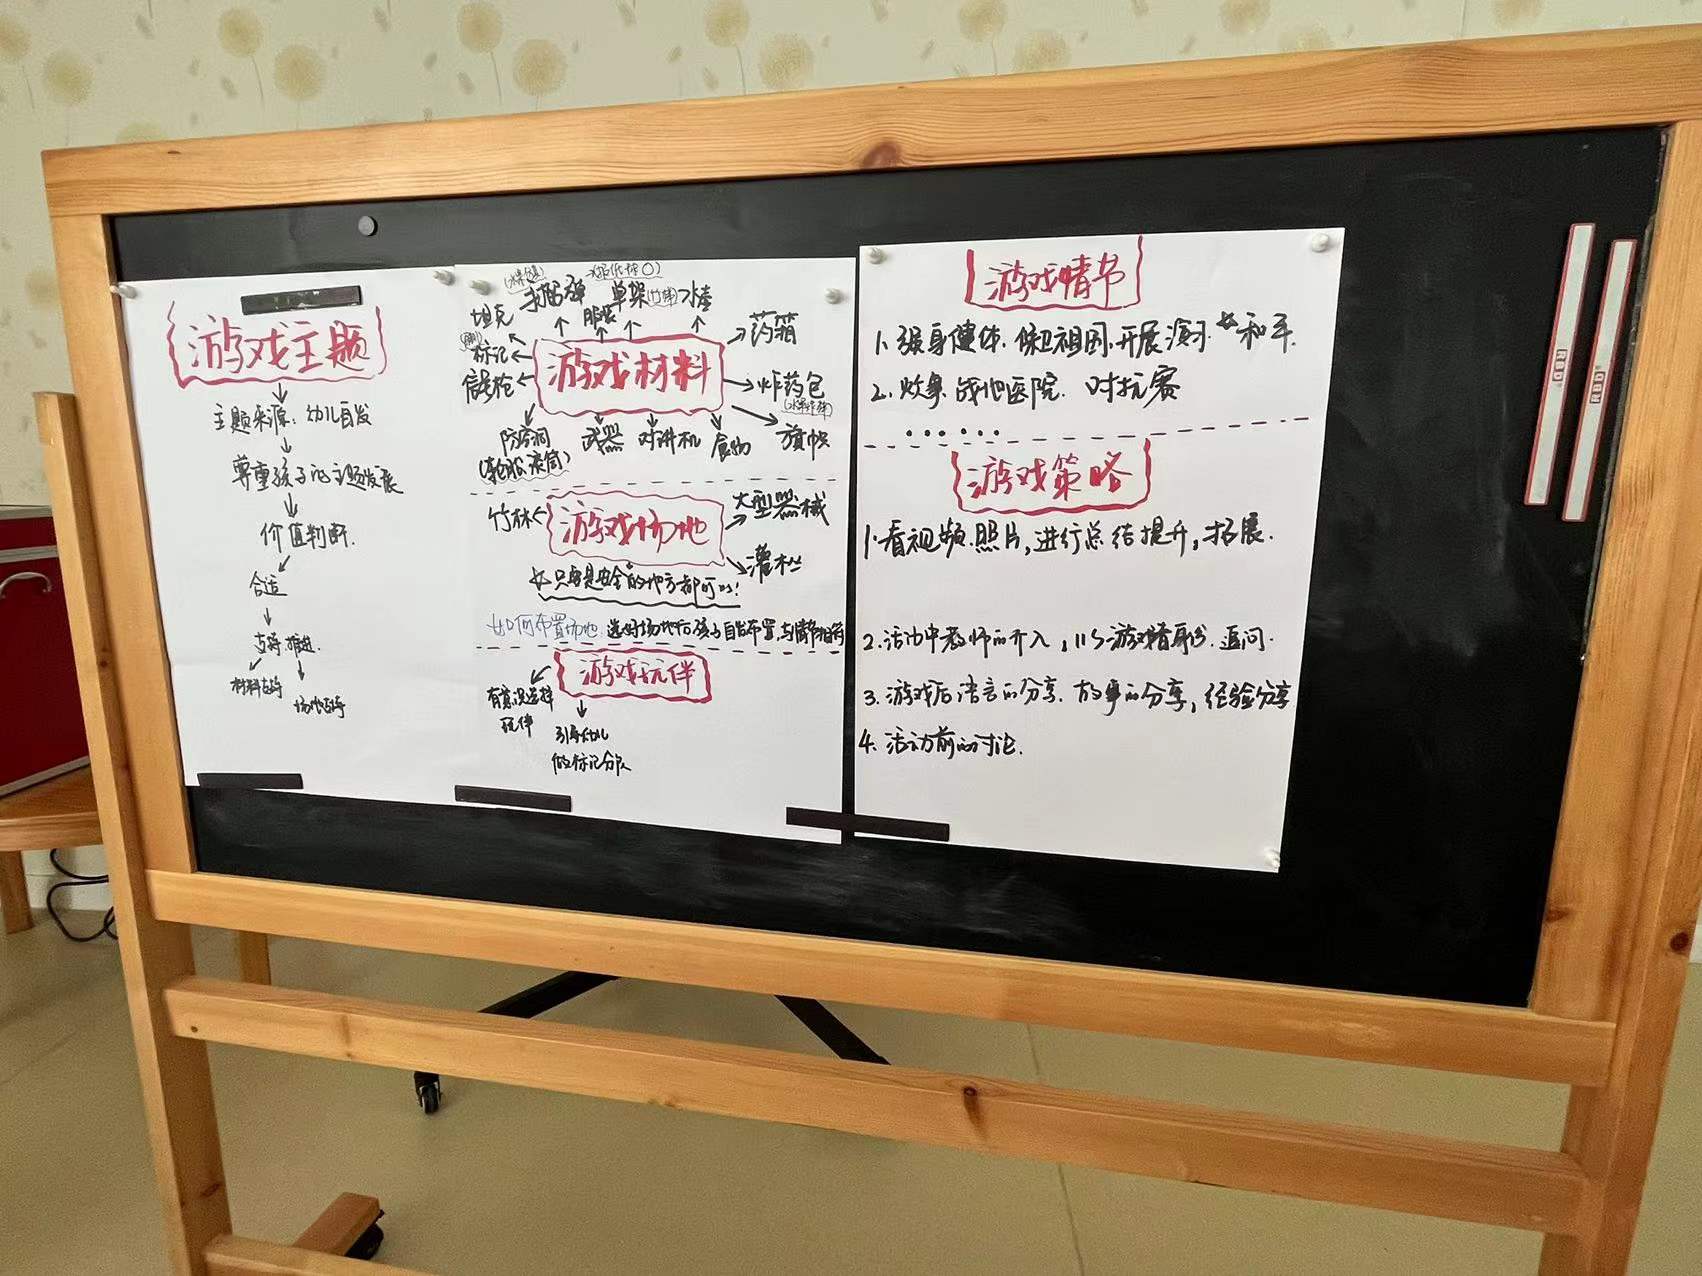 游戏主题
主题来源：幼儿自发
尊重孩子的主题发展
价值判断.
合适
支持.推进.
材料支持
场地支持
手榴弹
服装
单架(竹梯)
水壶
坦克
标记
信号枪
药箱
炸药包
旗帜
游戏材料
防空洞
(轮胎.滚筒)
武器
对讲机
食物
竹林
游戏场地
大型器械
灌木丛
☆只要是安全的地方都可以!
如何布置场地: 选好场地后孩子自发布置,与情节相符
游戏玩伴
有意识选择
玩伴
引导幼儿
做标记分队
游戏情节
1、强身健体.保卫祖国.开展演习 ☆和平.
2、炊事.战地医院.对抗赛
......
游戏策略
1.看视频.照片,进行总结提升,拓展.
2.活动中教师的介入,以游戏者身份.追问.
3.游戏后语言的分享.故事的分享,经验分享
4.活动前的讨论.